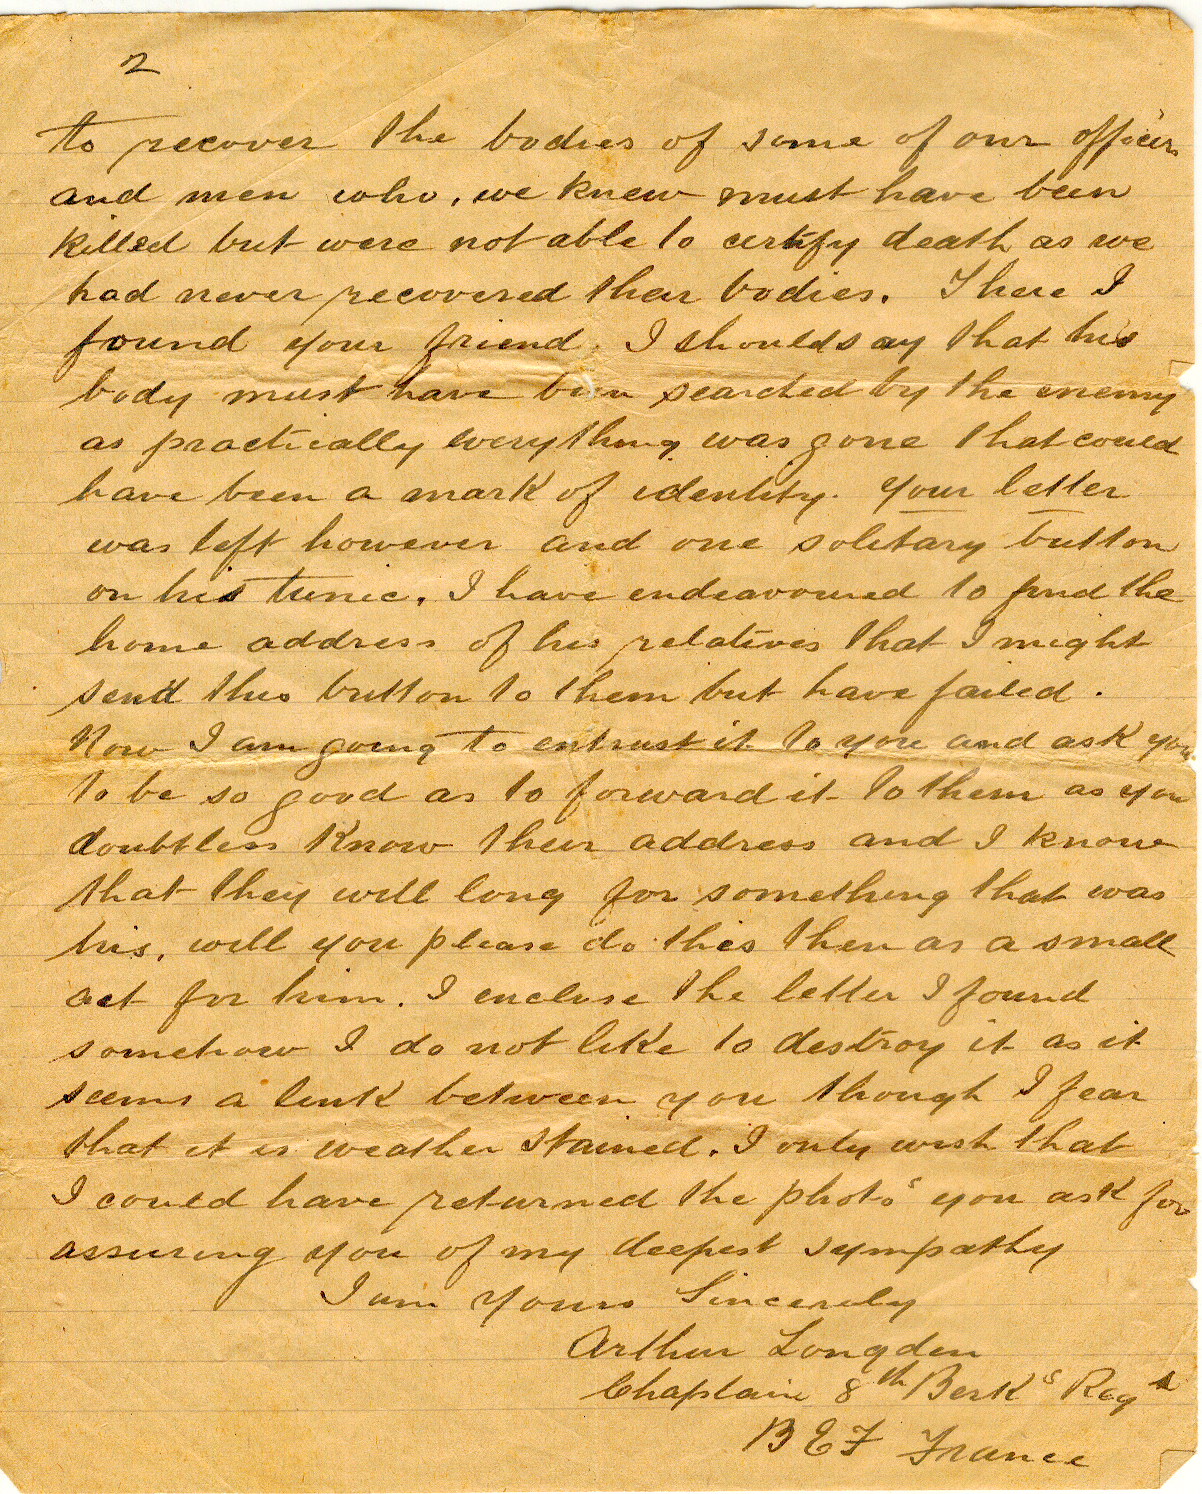 2
to recover the bodies of some of our officers
and men who, we knew must have been
killed but were not able to certify death as we
had never recovered their bodies. There I
found your friend. I should say that his
body must have been searched by the enemy
as practically everything was gone that could
have been a mark of identity. Your letter
was left however and one solitary button
on his tunic. I have endeavoured to find the
home address of his relatives that I might
send this button to them but have failed.
Now I am going to entrust it to you and ask you
to be so good as to forward it to them as you
doubtless know their address and I know
that they will long for something that was
his, will you please do this then as a small
act for him. I enclose the letter I found
somehow I do not like to destroy it as it
seems a link between you though I fear
that it is weather stained. I only wish that
I could have returned the photos you ask for
assuring you of my deepest sympathy
I am Yours Sincerely
Arthur Longden
Chaplain 8th Berks Regt
B E F France